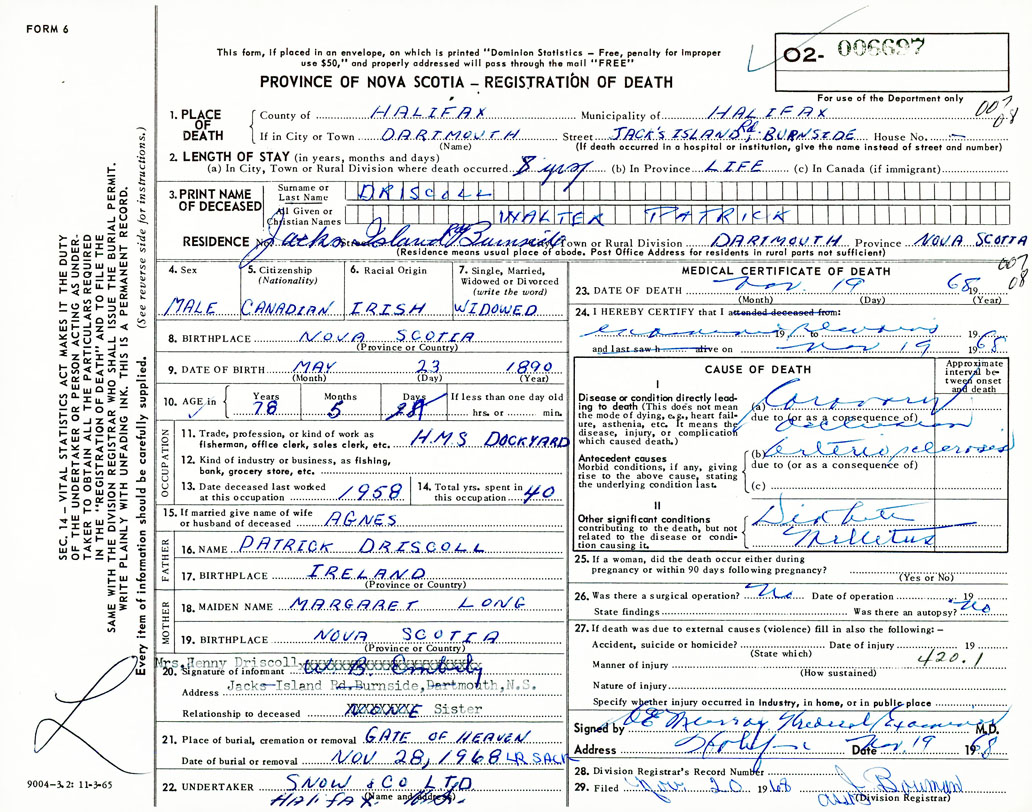 FORM 6
This form, if placed in an envelope, on which is printed "Dominion Statistics – Free, penalty for improper
use $50," and properly addressed will pass through the mail "FREE"
O2- 006697
PROVINCE OF NOVA SCOTIA – REGISTRATION OF DEATH
For use of the Department only
007
08
1. PLACE OF DEATH
County of HALIFAX Municipality of HALIFAX
If in City or Town DARTMOUTH Street JACK'S ISLAND Rd, BURNSIDE House No. –
(Name) (If death occurred in a hospital or institution, give the name instead of street and number)
2. LENGTH OF STAY (in years, months and days)
(a) In City, Town or Rural Division where death occurred 8 yrs (b) In Province LIFE (c) In Canada (if immigrant)
3. PRINT NAME OF DECEASED
Surname or Last Name DRISCOLL
All Given or Christian Names WALTER PATRICK
RESIDENCE No. Jacks Island Rd Burnside Town or Rural Division DARTMOUTH Province NOVA SCOTIA
(Residence means usual place of abode. Post Office Address for residents in rural parts not sufficient)
007
08
4. Sex MALE
5. Citizenship (Nationality) CANADIAN
6. Racial Origin IRISH
7. Single, Married, Widowed or Divorced (write the word) WIDOWED
8. BIRTHPLACE NOVA SCOTIA
(Province or Country)
9. DATE OF BIRTH MAY 23 1890
(Month) (Day) (Year)
10. AGE in Years 78 Months 5 Days If less than one day old
hrs. or min.
OCCUPATION
11. Trade, profession, or kind of work as
fisherman, office clerk, sales clerk, etc. H.M.S DOCKYARD
12. Kind of industry or business, as fishing,
bank, grocery store, etc.
13. Date deceased last worked
at this occupation 1958
14. Total yrs. spent in
this occupation 40
15. If married give name of wife
or husband of deceased AGNES
FATHER
16. NAME PATRICK DRISCOLL
17. BIRTHPLACE IRELAND
(Province or Country)
MOTHER
18. MAIDEN NAME MARGARET LONG
19. BIRTHPLACE NOVA SCOTIA
(Province or Country)
Mrs. Henny Driscoll
20. Signature of informant
Address Jacks Island Rd. Burnside, Dartmouth, N.S.
Relationship to deceased Sister
21. Place of burial, cremation or removal GATE OF HEAVEN
Date of burial or removal NOV 28, 1968 LR. SACK
22. UNDERTAKER SNOW & CO LTD
(Name and address)
HALIFAX N.S.
MEDICAL CERTIFICATE OF DEATH
23. DATE OF DEATH Nov. 19 68 19
(Month) (Day) (Year)
24. I HEREBY CERTIFY that I attended deceased from:
19 to 19
and last saw h alive on Nov 19 1968
CAUSE OF DEATH
Approximate interval between onset and death
I
Disease or condition directly leading to death (This does not mean
the mode of dying, e.g., heart failure, asthenia, etc. It means the
disease, injury, or complication
which caused death.)
(a) Coronary occlusion
due to (or as a consequence of)
Antecedent causes
Morbid conditions, if any, giving
rise to the above cause, stating
the underlying condition last.
(b) Arteriosclerosis
due to (or as a consequence of)
(c)
II
Other significant conditions
contributing to the death, but not
related to the disease or condition causing it.
Diabetes
Mellitus
25. If a woman, did the death occur either during
pregnancy or within 90 days following pregnancy?
(Yes or No)
26. Was there a surgical operation? No Date of operation 19
State findings Was there an autopsy? No
27. If death was due to external causes (violence) fill in also the following: –
Accident, suicide or homicide? Date of injury 19
(State which)
420.1
Manner of injury
(How sustained)
Nature of injury
Specify whether injury occurred in Industry, in home, or in public place
Signed by Murray Medical Examiner M.D.
Address Halifax Date Nov. 19 1968
28. Division Registrar's Record Number
29. Filed Nov 20 1968 J. Bowman
(Division Registrar)
SEC. 14 – VITAL STATISTICS ACT MAKES IT THE DUTY
OF THE UNDERTAKER OR PERSON ACTING AS UNDER-
TAKER TO OBTAIN ALL THE PARTICULARS REQUIRED
IN THE "REGISTRATION OF DEATH" AND TO FILE THE
SAME WITH THE DIVISION REGISTRAR WHO SHALL ISSUE THE BURIAL PERMIT.
WRITE PLAINLY WITH UNFADING INK. THIS IS A PERMANENT RECORD.
Every item of information should be carefully supplied. (See reverse side for instructions.)
9004-3.2: 11-3-65